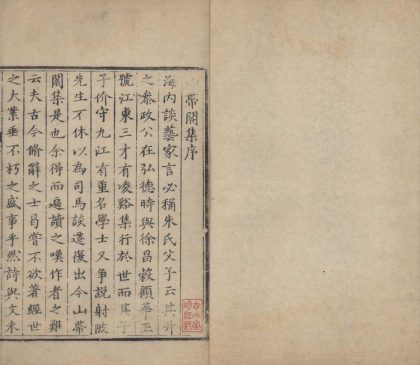 山帶閣集序
海內談藝家言必稱朱氏父子云其升
之參政公在弘德時與徐昌穀顧華玉
號江東三才有凌谿集行於世而其子
子价守九江有重名學士又爭說射陂
先生不休以為司馬談遷復出今山帶
閣集是也余得而遍讀之嘆作者之難
云夫古今脩辭之士曷嘗不欲著經世
之大業垂不朽之盛事乎然詩與文未